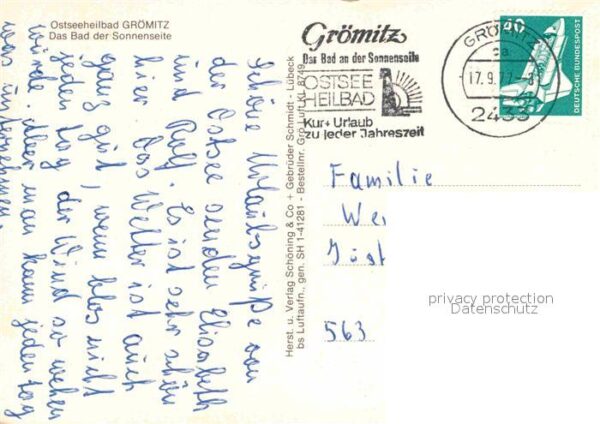 Ostseeheilbad GRÖMITZ
Das Bad der Sonnenseite
Schöne Urlaubsgrüße von
der Ostsee senden Elisabeth
und Rolf. Es ist sehr schön
hier. Das Wetter ist auch
ganz gut, wenn blos nicht
jeden Tag der Wind so wehen
würde. Aber man kann jeden Tag
was unternehmen.
Herst. u. Verlag Schöning & Co + Gebrüder Schmidt - Lübeck
bs Luftaufn., gen. SH 1-41281 - Bestellnr. Grö Luft KL 8749
Grömitz
Das Bad an der Sonnenseite
OSTSEE
HEILBAD
Kur + Urlaub
zu jeder Jahreszeit
GRÖMITZ
17.9.77
2433
40
DEUTSCHE BUNDESPOST
Familie
We
Just
563
privacy protection
Datenschutz